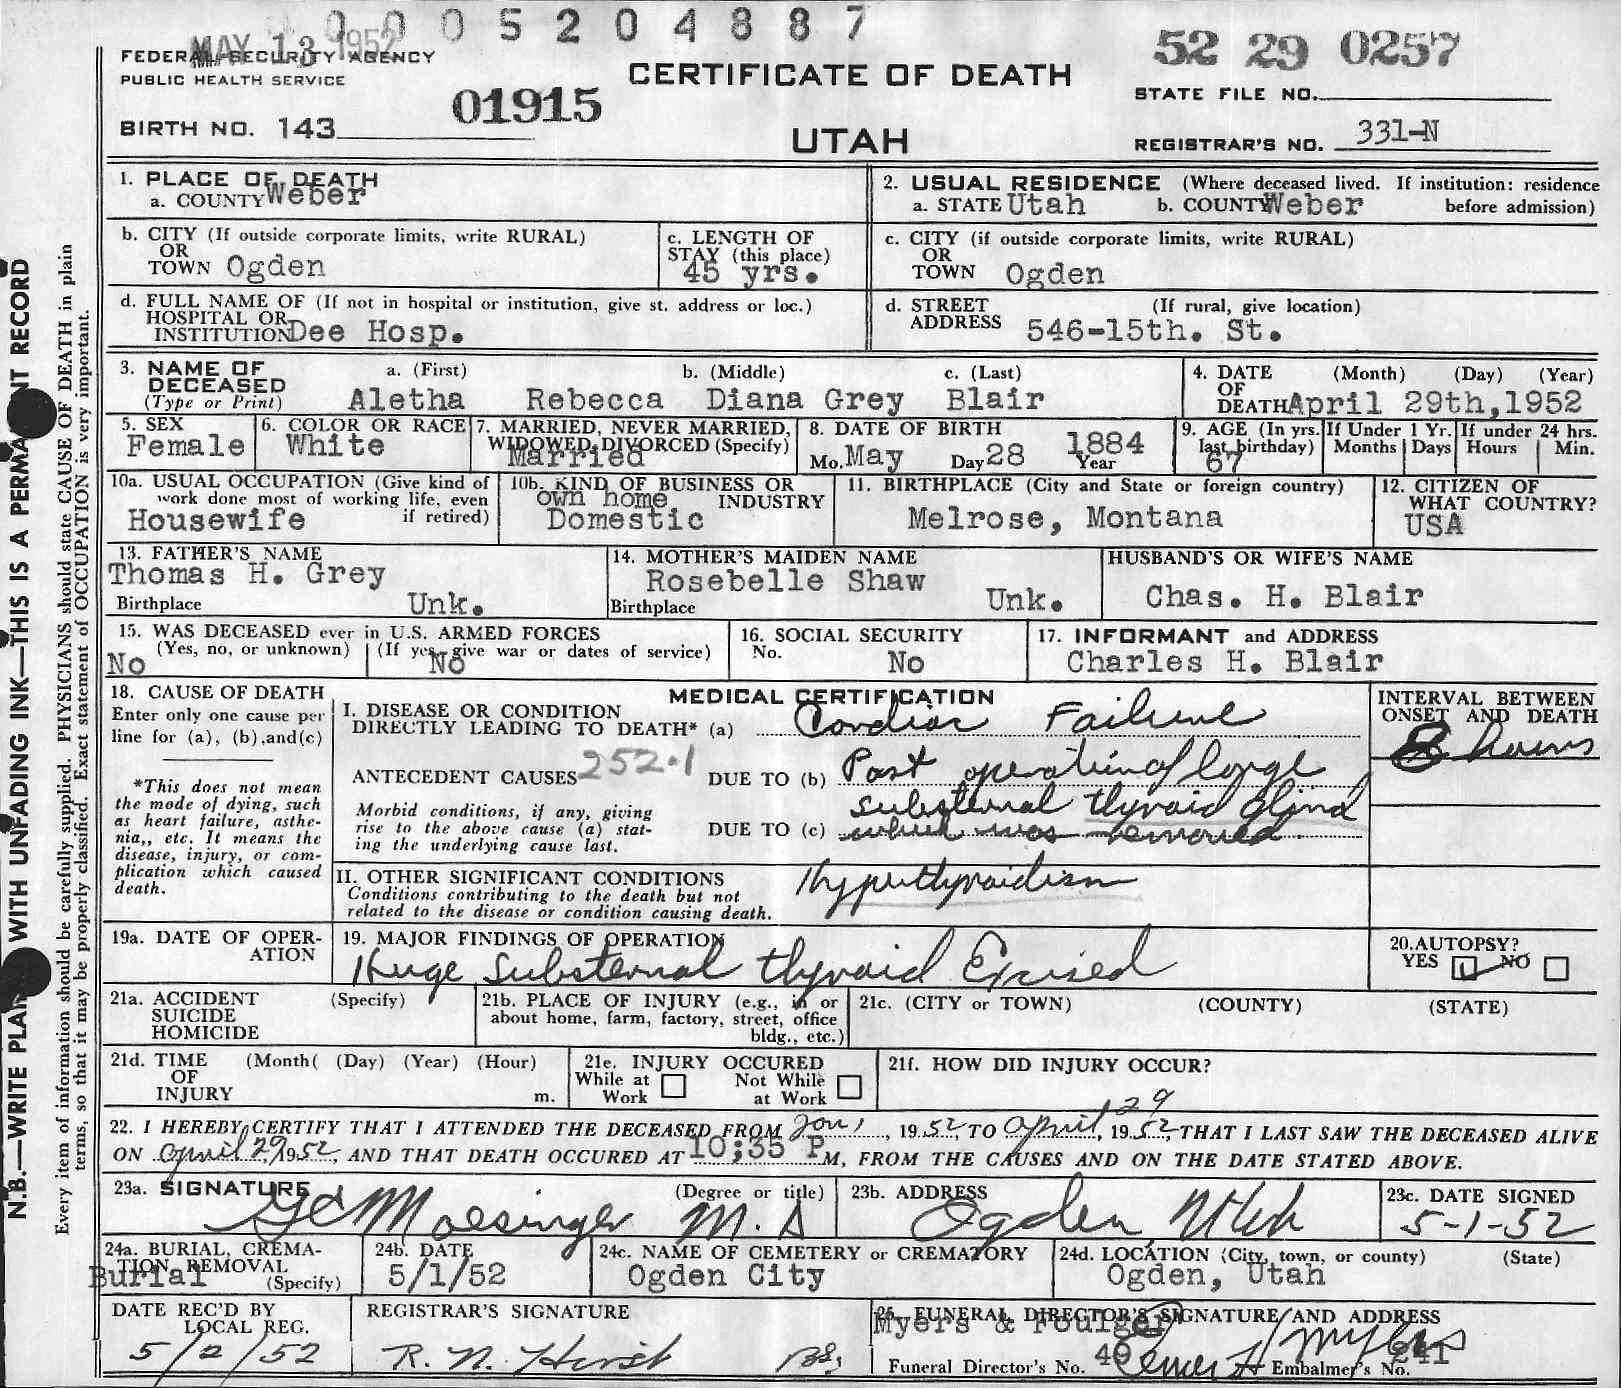 0 0 0 5 2 0 4 8 8 7
MAY 13 1952
FEDERAL SECURITY AGENCY
PUBLIC HEALTH SERVICE
BIRTH NO. 143
01915
CERTIFICATE OF DEATH
UTAH
52 29 0257
STATE FILE NO.
REGISTRAR'S NO. 331-N
N.B.—WRITE PLAINLY WITH UNFADING INK—THIS IS A PERMANENT RECORD
Every item of information should be carefully supplied. PHYSICIANS should state CAUSE OF DEATH in plain
terms, so that it may be properly classified. Exact statement of OCCUPATION is very important.
1. PLACE OF DEATH
a. COUNTY Weber
2. USUAL RESIDENCE (Where deceased lived. If institution: residence
a. STATE Utah b. COUNTY Weber before admission)
b. CITY (If outside corporate limits, write RURAL)
OR
TOWN Ogden
c. LENGTH OF
STAY (this place)
45 yrs.
c. CITY (if outside corporate limits, write RURAL)
OR
TOWN Ogden
d. FULL NAME OF (If not in hospital or institution, give st. address or loc.)
HOSPITAL OR
INSTITUTION Dee Hosp.
d. STREET (If rural, give location)
ADDRESS 546-15th. St.
3. NAME OF a. (First) b. (Middle) c. (Last)
DECEASED
(Type or Print) Aletha Rebecca Diana Grey Blair
4. DATE (Month) (Day) (Year)
OF
DEATH April 29th,1952
5. SEX
Female
6. COLOR OR RACE
White
7. MARRIED, NEVER MARRIED,
WIDOWED, DIVORCED (Specify)
Married
8. DATE OF BIRTH
Mo. May Day 28 1884
Year
9. AGE (In yrs.
last birthday)
67
If Under 1 Yr.
Months Days
If under 24 hrs.
Hours Min.
10a. USUAL OCCUPATION (Give kind of
work done most of working life, even
if retired)
Housewife
10b. KIND OF BUSINESS OR
INDUSTRY
own home
Domestic
11. BIRTHPLACE (City and State or foreign country)
Melrose, Montana
12. CITIZEN OF
WHAT COUNTRY?
USA
13. FATHER'S NAME
Thomas H. Grey
Birthplace Unk.
14. MOTHER'S MAIDEN NAME
Rosebelle Shaw
Birthplace Unk.
HUSBAND'S OR WIFE'S NAME
Chas. H. Blair
15. WAS DECEASED ever in U.S. ARMED FORCES
(Yes, no, or unknown) (If yes, give war or dates of service)
No No
16. SOCIAL SECURITY
No. No
17. INFORMANT and ADDRESS
Charles H. Blair
18. CAUSE OF DEATH
Enter only one cause per
line for (a), (b),and(c)
*This does not mean
the mode of dying, such
as heart failure, asthe-
nia,, etc. It means the
disease, injury, or com-
plication which caused
death.
MEDICAL CERTIFICATION
I. DISEASE OR CONDITION
DIRECTLY LEADING TO DEATH* (a) Cardiac Failure
INTERVAL BETWEEN
ONSET AND DEATH
8 hours
ANTECEDENT CAUSES 252.1
DUE TO (b) Post operation of large
substernal thyroid gland
Morbid conditions, if any, giving
rise to the above cause (a) stat-
ing the underlying cause last.
DUE TO (c) which was removed
II. OTHER SIGNIFICANT CONDITIONS
Conditions contributing to the death but not
related to the disease or condition causing death.
Hyperthyroidism
19a. DATE OF OPER-
ATION
19. MAJOR FINDINGS OF OPERATION
Huge Substernal thyroid Excised
20.AUTOPSY?
YES NO
21a. ACCIDENT (Specify)
SUICIDE
HOMICIDE
21b. PLACE OF INJURY (e.g., in or
about home, farm, factory, street, office
bldg., etc.)
21c. (CITY or TOWN) (COUNTY) (STATE)
21d. TIME (Month( (Day) (Year) (Hour)
OF
INJURY m.
21e. INJURY OCCURED
While at Not While
Work at Work
21f. HOW DID INJURY OCCUR?
22. I HEREBY CERTIFY THAT I ATTENDED THE DECEASED FROM Jan 1, 1952, TO April 29, 1952, THAT I LAST SAW THE DECEASED ALIVE
ON April 29, 1952, AND THAT DEATH OCCURED AT 10;35 P M, FROM THE CAUSES AND ON THE DATE STATED ABOVE.
23a. SIGNATURE (Degree or title)
Moesinger M.D
23b. ADDRESS
Ogden Utah
23c. DATE SIGNED
5-1-52
24a. BURIAL, CREMA-
TION REMOVAL
(Specify)
Burial
24b. DATE
5/1/52
24c. NAME OF CEMETERY or CREMATORY
Ogden City
24d. LOCATION (City, town, or county) (State)
Ogden, Utah
DATE REC'D BY
LOCAL REG.
5/2/52
REGISTRAR'S SIGNATURE
R. N. Hirst
25. FUNERAL DIRECTOR'S SIGNATURE AND ADDRESS
Myers & Foulger
Myers
Funeral Director's No. 49 Embalmer's No. 241